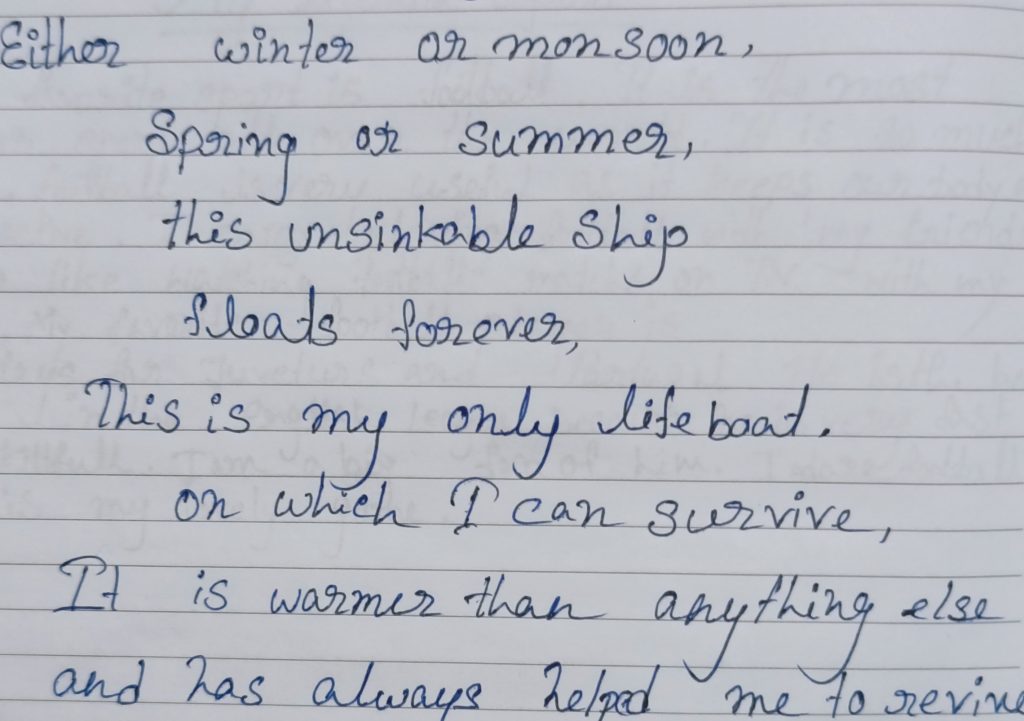 Either winter or monsoon,
Spring or summer,
this unsinkable ship
floats forever,
This is my only lifeboat.
on which I can survive,
It is warmer than anything else
and has always helped me to revive